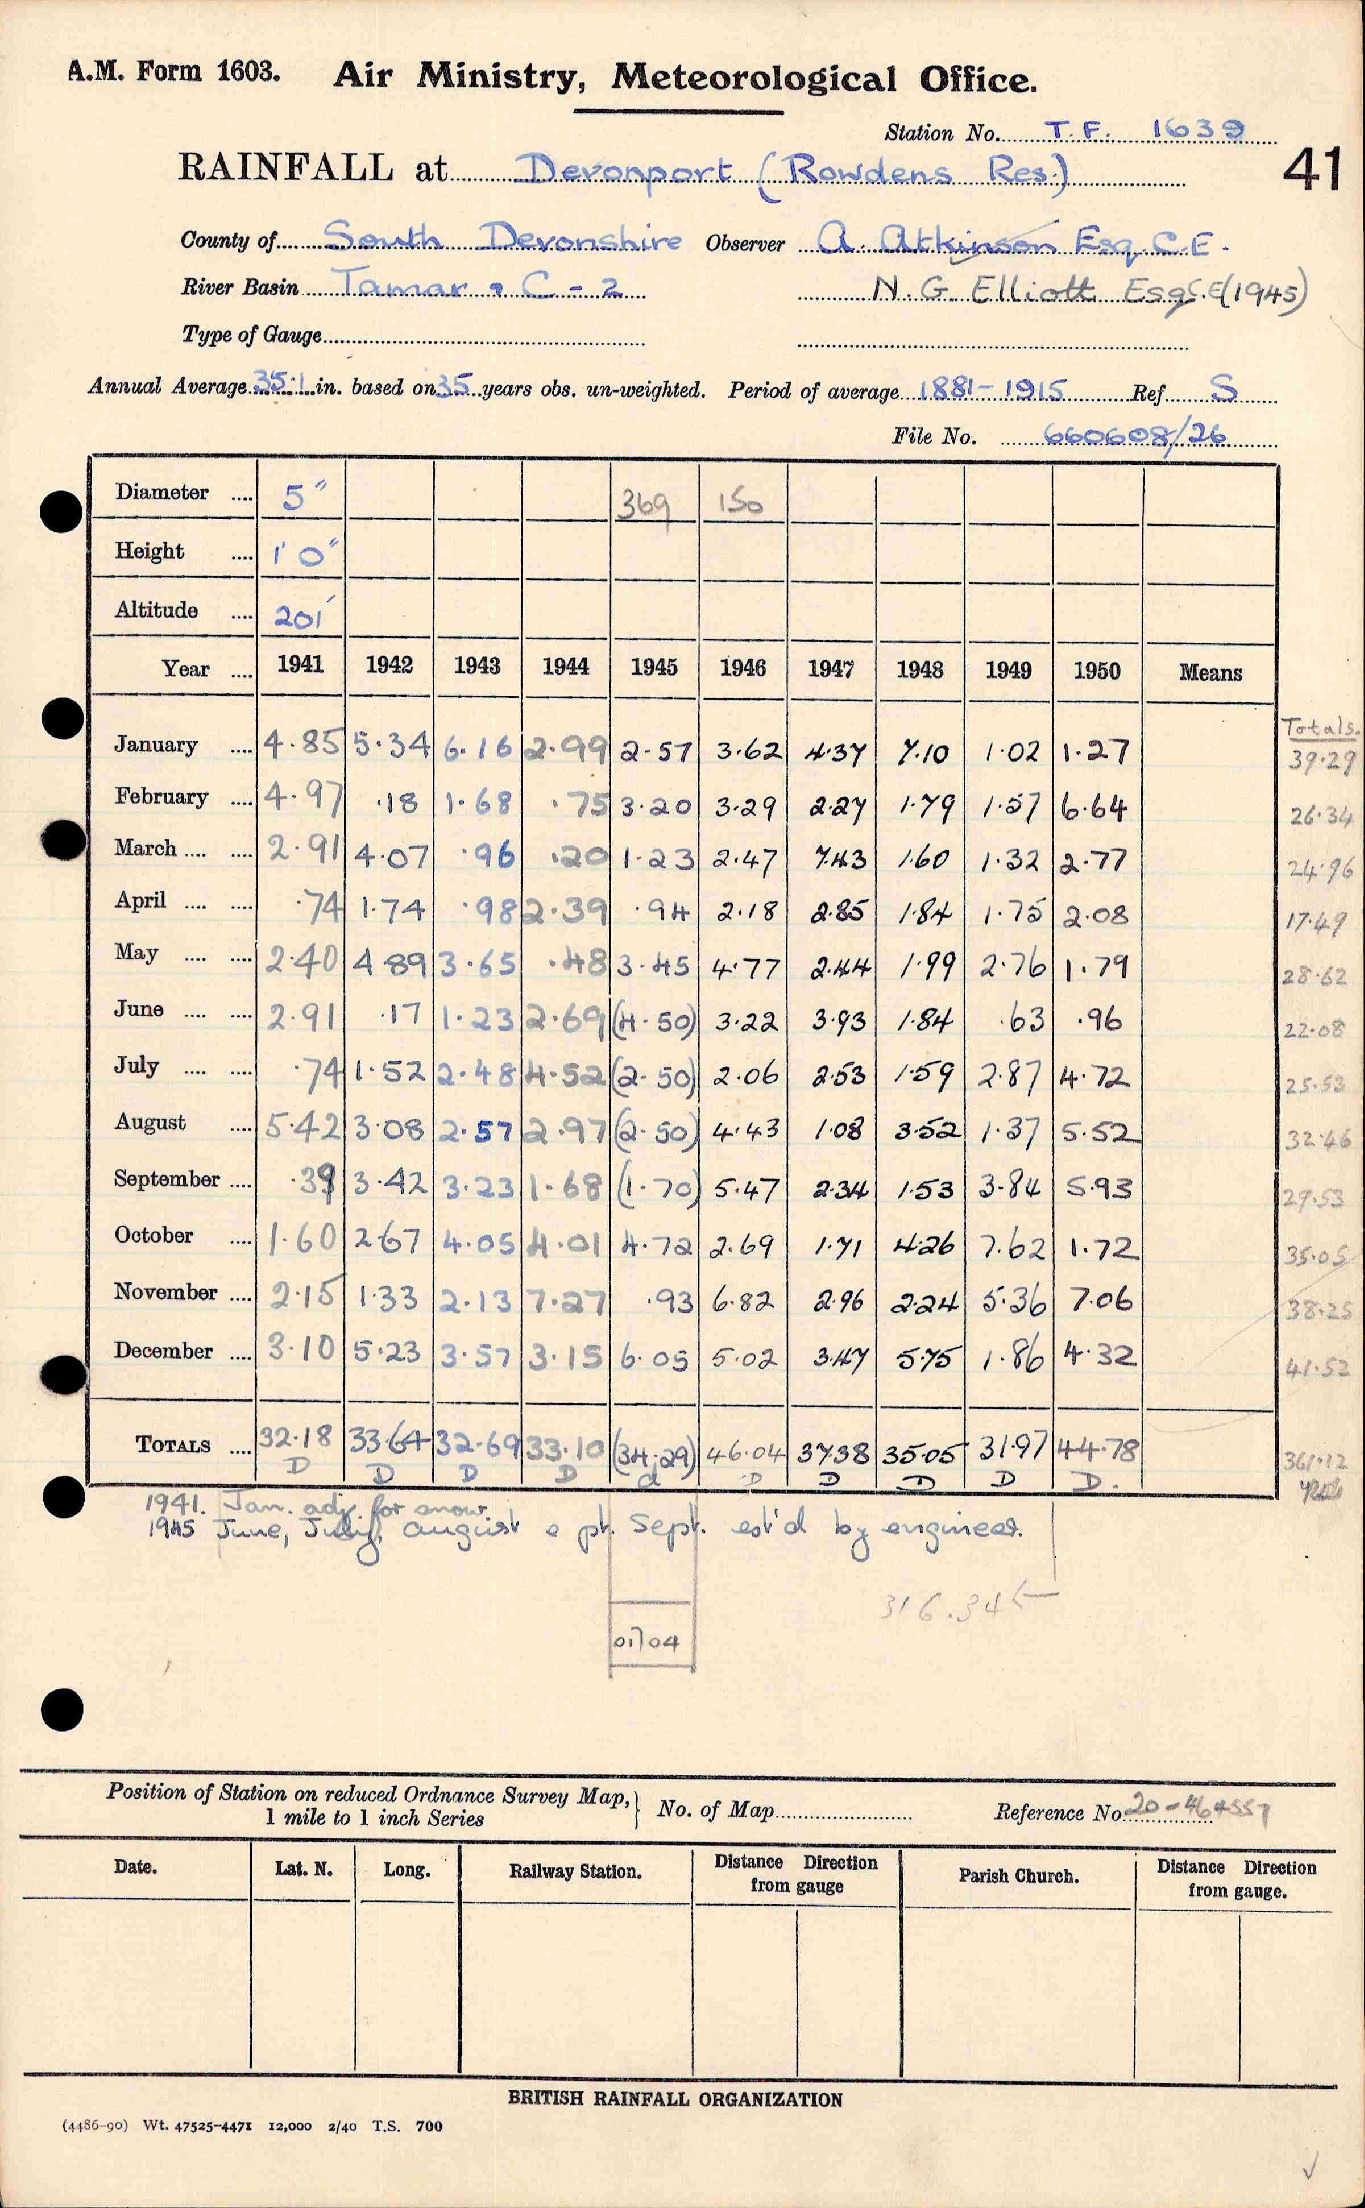 A.M. Form 1603. Air Ministry, Meteorological Office.
Station No. T.F. 1639
RAINFALL at Devonport (Rowdens Res.) 41
County of South Devonshire Observer A. Atkinson Esq. C.E.
River Basin Tamar & C - 2 N. G. Elliott Esq C.E (1945)
Type of Gauge
Annual Average 35.1 in. based on 35 years obs. un-weighted. Period of average 1881-1915 Ref S
File No. 660608/26
Diameter .... 5" 369 150
Height .... 1' 0"
Altitude .... 201'
Year .... 1941 1942 1943 1944 1945 1946 1947 1948 1949 1950 Means
Totals.
January .... 4.85 5.34 6.16 2.99 2.57 3.62 4.37 7.10 1.02 1.27 39.29
February .... 4.97 .18 1.68 .75 3.20 3.29 2.27 1.79 1.57 6.64 26.34
March .... .... 2.91 4.07 .96 .20 1.23 2.47 7.43 1.60 1.32 2.77 24.96
April .... .... .74 1.74 .98 2.39 .94 2.18 2.85 1.84 1.75 2.08 17.49
May .... .... 2.40 4.89 3.65 .48 3.45 4.77 2.44 1.99 2.76 1.79 28.62
June .... .... 2.91 .17 1.23 2.69 (4.50) 3.22 3.93 1.84 .63 .96 22.08
July .... .... .74 1.52 2.48 4.52 (2.50) 2.06 2.53 1.59 2.87 4.72 25.53
August .... 5.42 3.08 2.57 2.97 (2.50) 4.43 1.08 3.52 1.37 5.52 32.46
September .... .39 3.42 3.23 1.68 (1.70) 5.47 2.34 1.53 3.84 5.93 29.53
October .... 1.60 2.67 4.05 4.01 4.72 2.69 1.71 4.26 7.62 1.72 35.05
November .... 2.15 1.33 2.13 7.27 .93 6.82 2.96 2.24 5.36 7.06 38.25
December .... 3.10 5.23 3.57 3.15 6.05 5.02 3.47 5.75 1.86 4.32 41.52
TOTALS .... 32.18 33.64 32.69 33.10 (34.29) 46.04 37.38 35.05 31.97 44.78 361.12
D D D D d D D D D D.
1941. Jan. adj. for snow.
1945 June, July, August & pt. Sept. est'd by engineer.
316.34 ←
01704
Position of Station on reduced Ordnance Survey Map,
1 mile to 1 inch Series
No. of Map Reference No. 20-464557
Date. Lat. N. Long. Railway Station. Distance Direction from gauge Parish Church. Distance Direction from gauge.
BRITISH RAINFALL ORGANIZATION
(4486-90) Wt. 47525-4471 12,000 2/40 T.S. 700